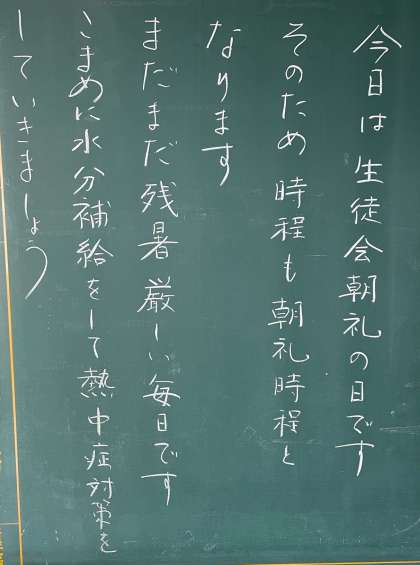 今日は生徒会朝礼の日です
そのため時程も朝礼時程と
なります
まだまだ残暑厳しい毎日です
こまめに水分補給をして熱中症対策を
していきましょう